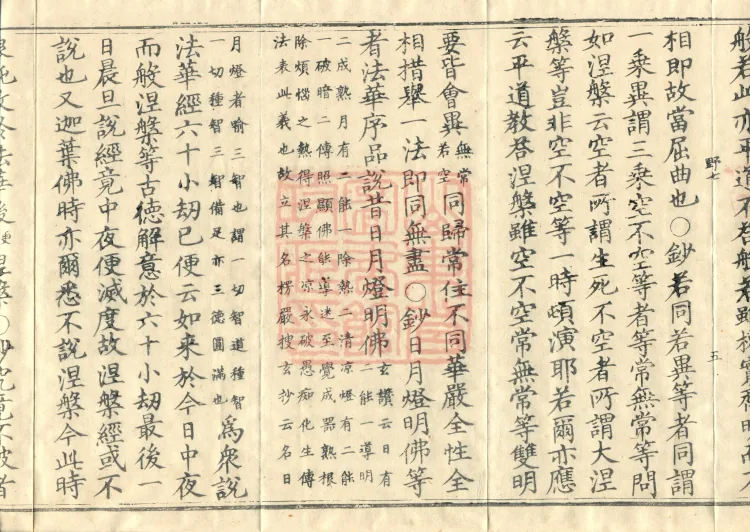 般若此亦平道不若般若雖
相即故當屈曲也〇鈔若同若異等者同謂
一乘異謂三乘空不空等者等常無常等問
如涅槃云空者所謂生死不空者所謂大涅
槃等豈非空不空等一時頓演耶若爾亦應
云平道教答涅槃雖空不空常無常等雙明
野七
五
要皆會異無常若空同歸常住不同華嚴全性全
相揩舉一法即同無盡〇鈔日月燈明佛等
者法華序品說昔日月燈明佛玄讚云日有二能一導明
二成熟月有二能一除熱二清凉燈有二能
一破暗二傳照顯佛能導迷至覺成器熟根
除煩惱之熱得涅槃之凉永破愚痴化生傳
法表此義也故立其名楞嚴搜玄抄云名日
月燈者喻三智也謂一切智道種智
一切種智三智備足亦三德圓滿也為衆說
法華經六十小劫已便云如来於今日中夜
而般涅槃等古德解意於六十小劫最後一
日晨旦說經竟中夜便滅度故涅槃經或不
說也又迦葉佛時亦爾悉不說涅槃今此時